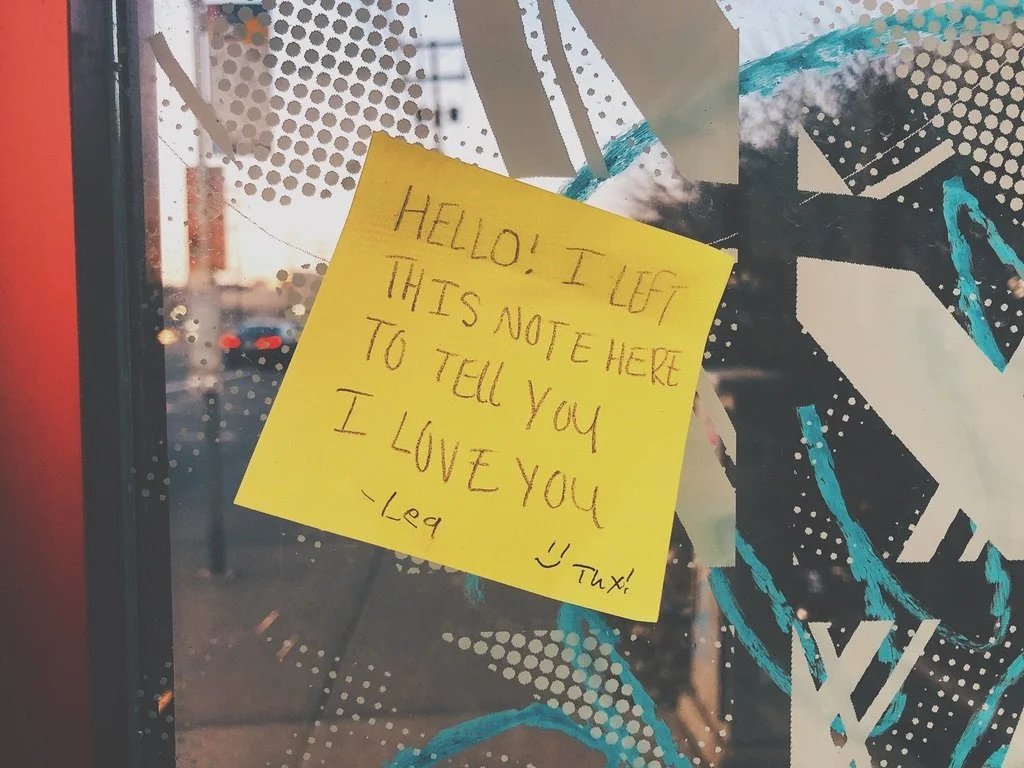 HELLO! I LEFT
THIS NOTE HERE
TO TELL YOU
I LOVE YOU
-Lea
Thx!